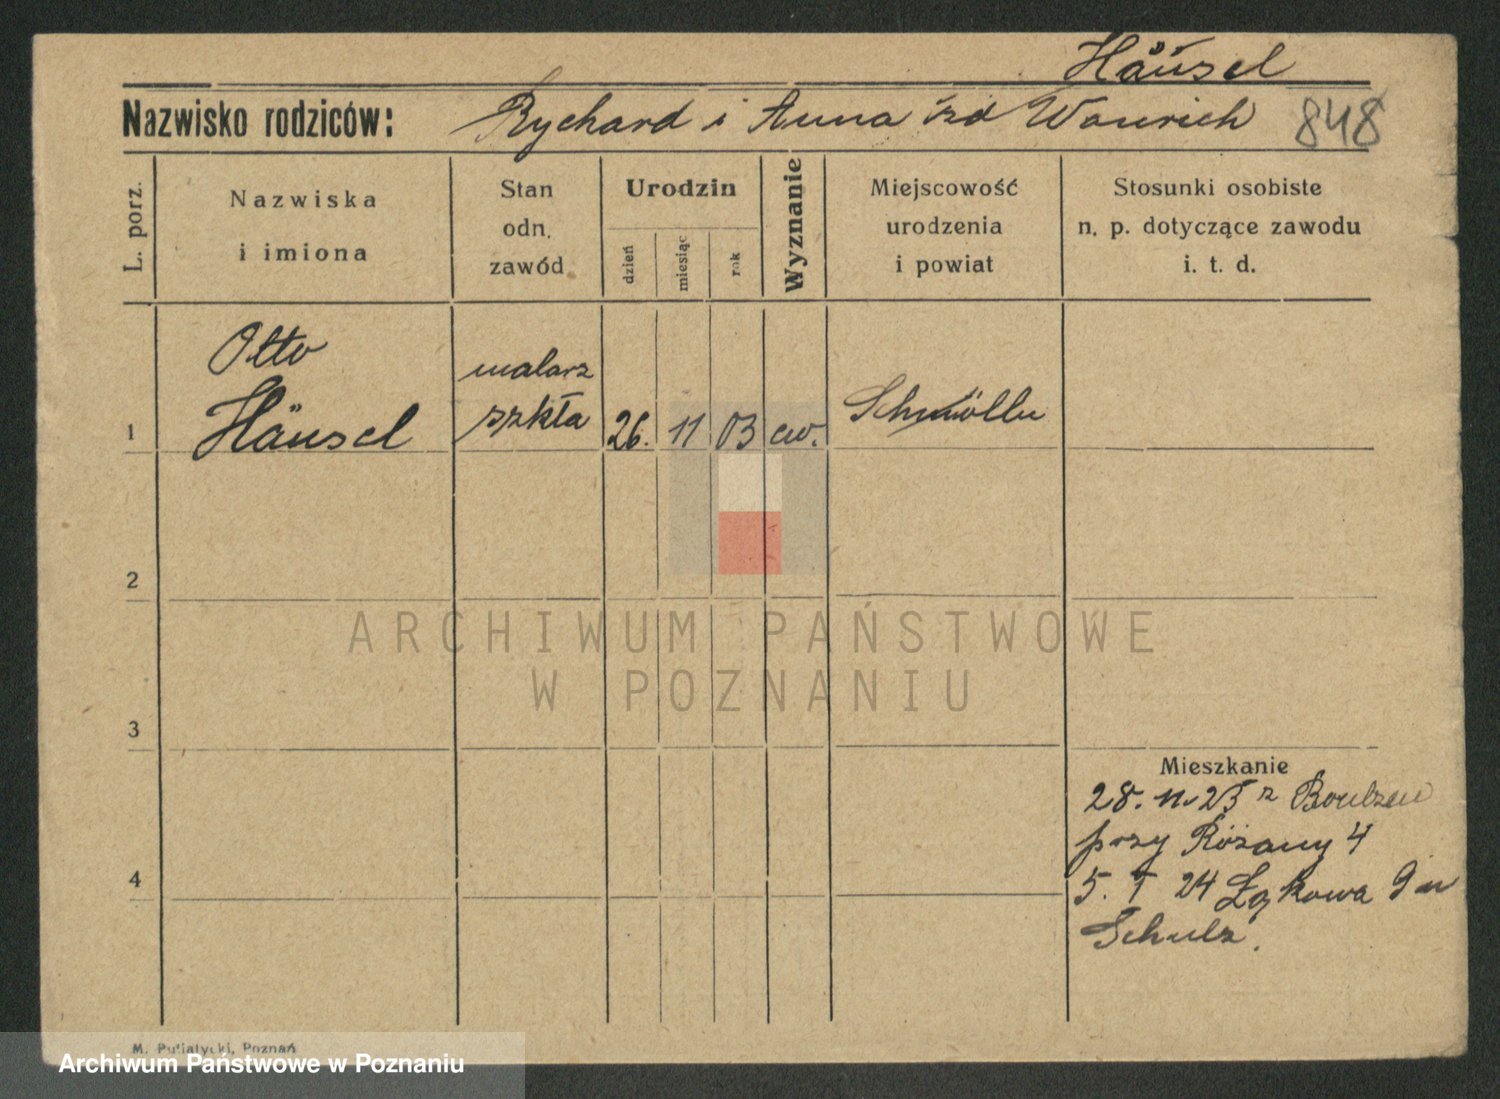 Häusel
Nazwisko rodziców: Rychard i Anna zd 848
L. porz.
Nazwiska
i imiona
Stan
odn.
zawód
Urodzin
dzień
miesiąc
rok
Wyznanie
Miejscowość
urodzenia
i powiat
Stosunki osobiste
n. p. dotyczące zawodu
i. t. d.
Otto
Häusel
malarz
szkła
1 26. 11 03 ew. Schmölln
2
3
4
Mieszkanie
28. 11. 23 z
przy Różany 4
5. I 24 Łąkowa 9 u
Schulz.
ARCHIWUM PAŃSTWOWE
W POZNANIU
M. Putiatycki, Poznań
Archiwum Państwowe w Poznaniu